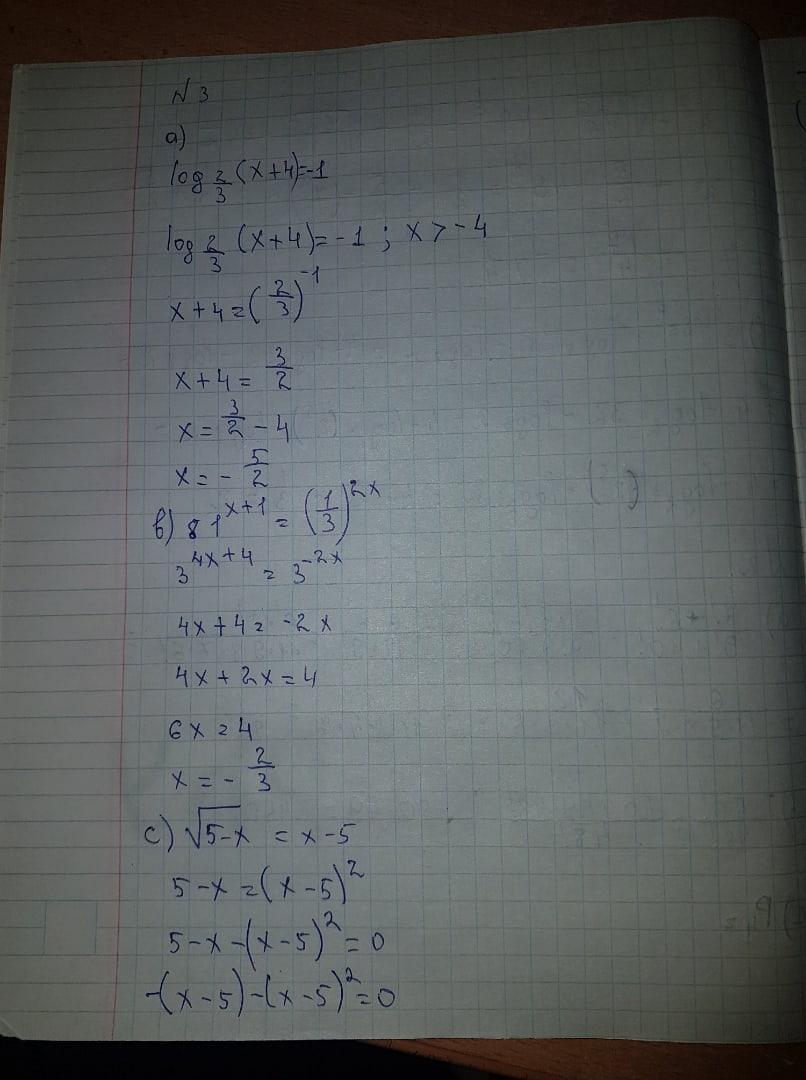 № 3
a)
log 2/3 (x+4)=-1
log 2/3 (x+4)=-1 ; x > -4
x+4=(2/3)^-1
x+4=3/2
x=3/2-4
x=-5/2
b) 81^x+1 = (1/3)^2x
3^4x+4 = 3^-2x
4x+4=-2x
4x+2x=4
6x=4
x=-2/3
c) √5-x = x-5
5-x=(x-5)^2
5-x-(x-5)^2=0
-(x-5)-(x-5)^2=0